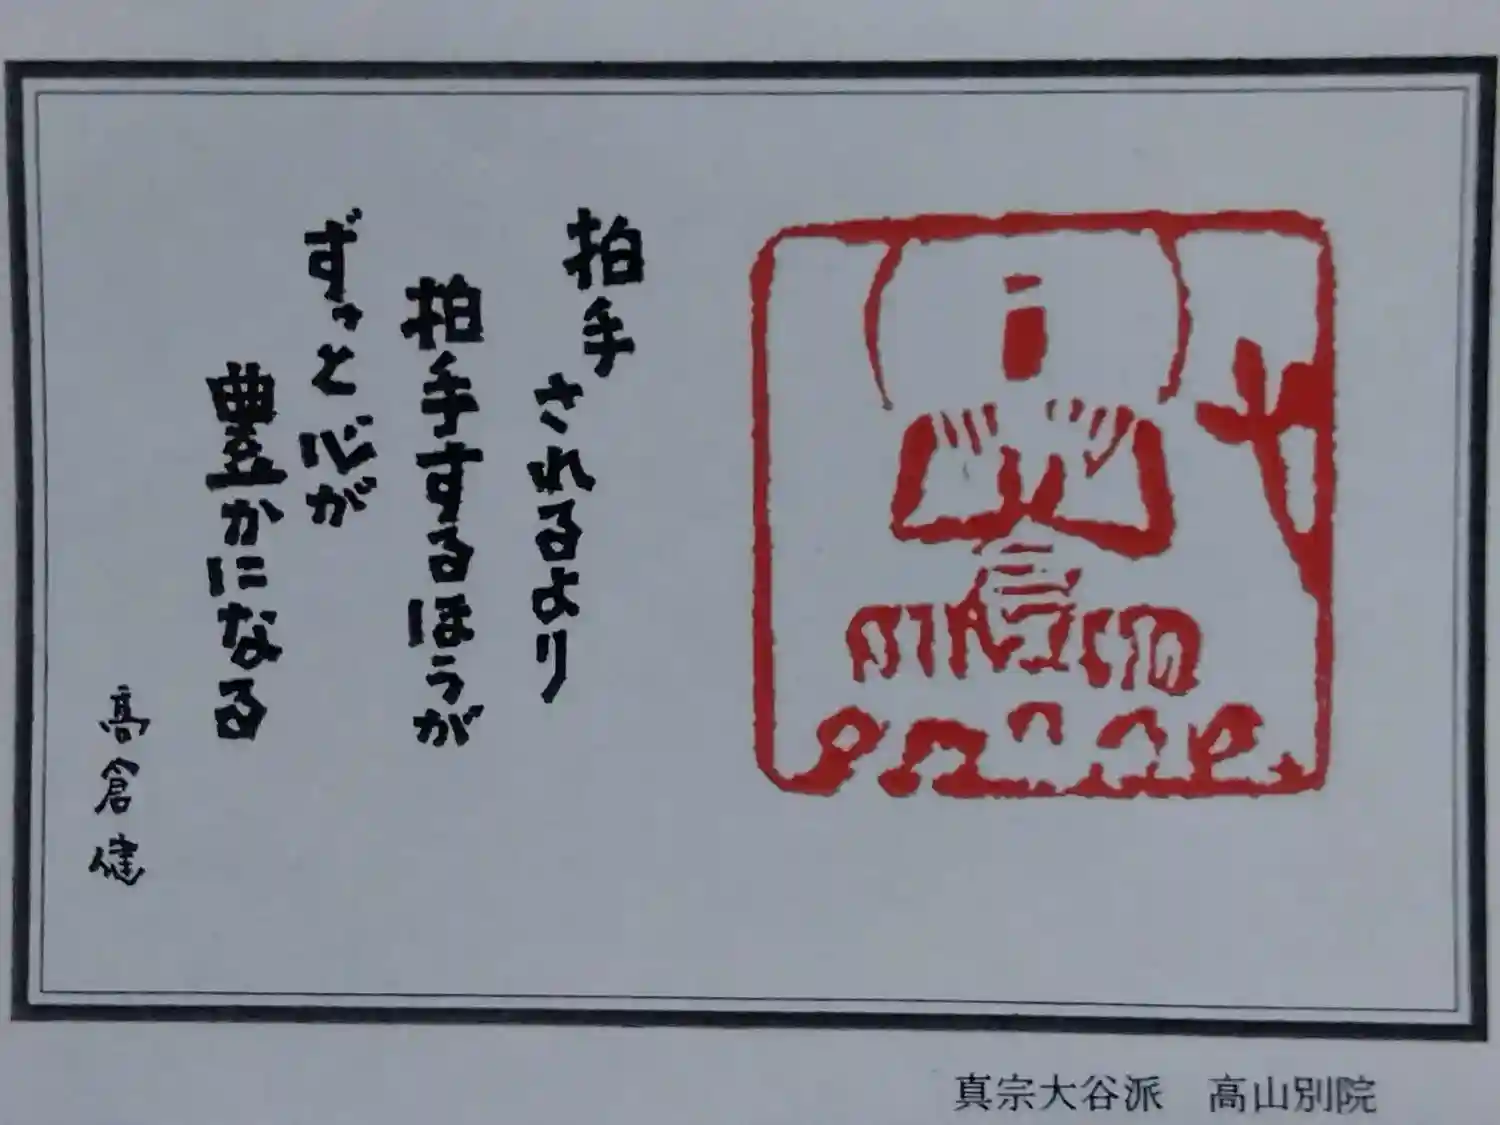 拍手
されるより
拍手するほうが
ずっと心が
豊かになる
高倉健
真宗大谷派　高山別院